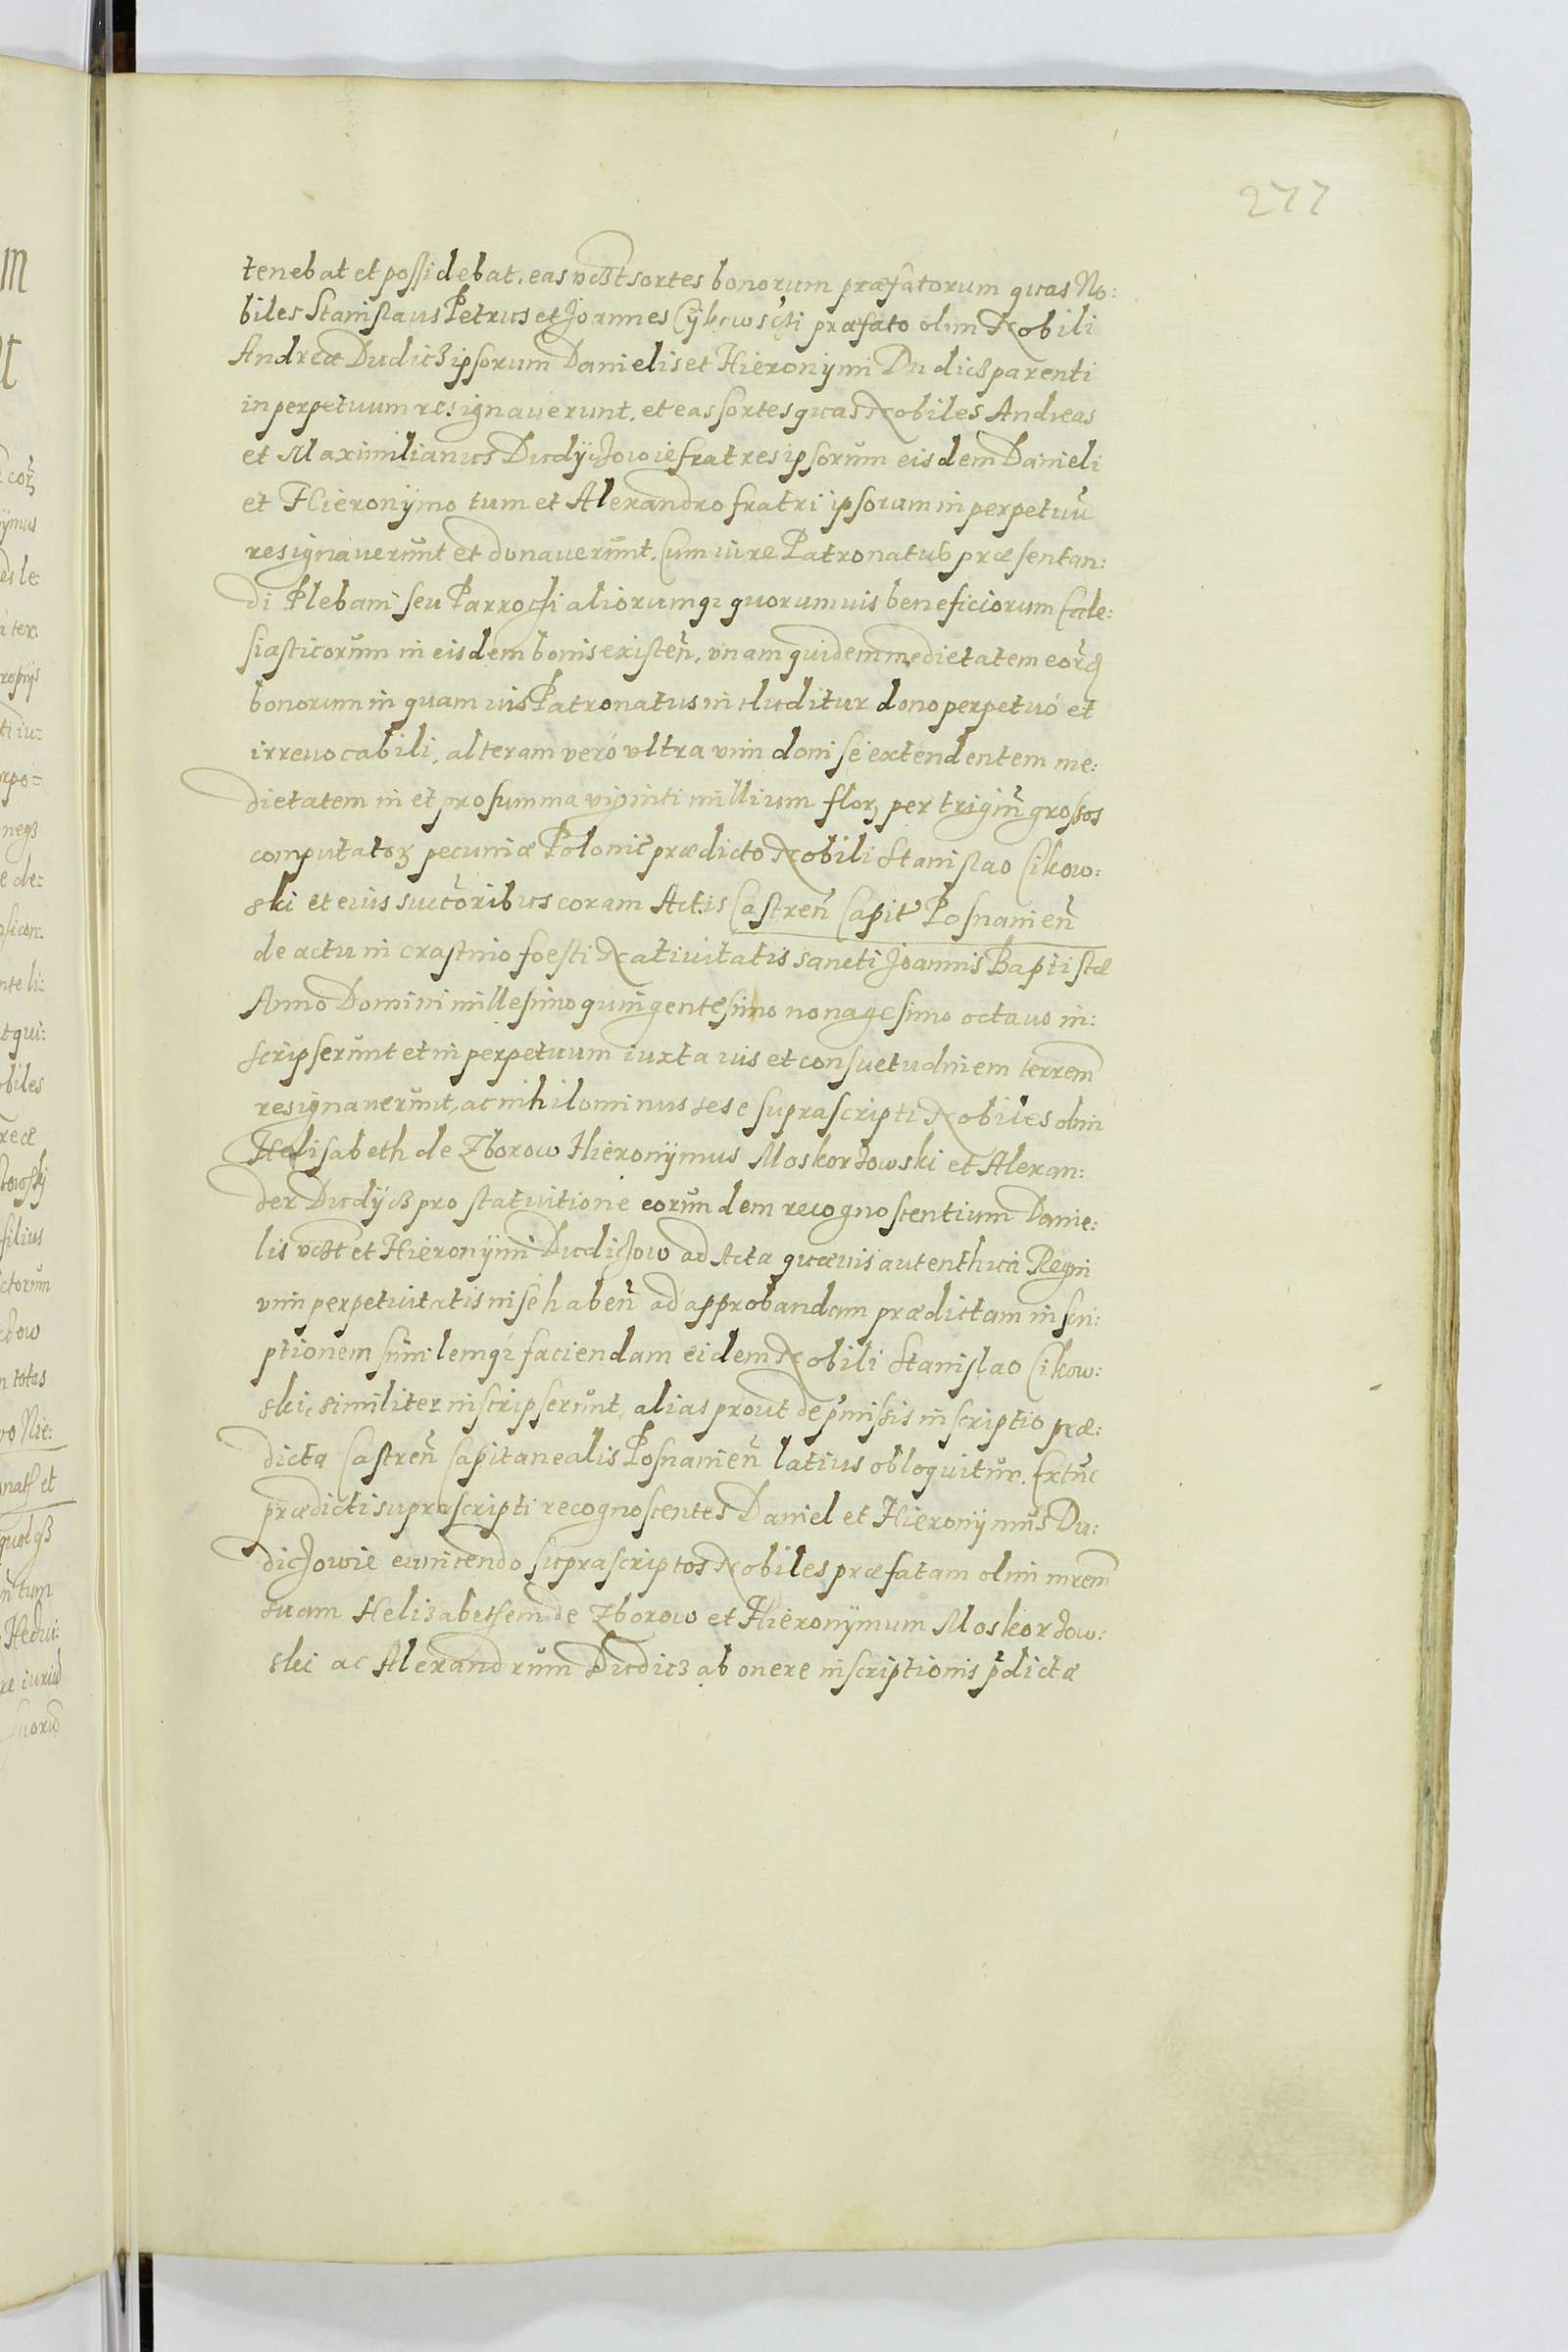 277
tenebat et possidebat. eas vcet sortes bonorum præfatorum quas No:
biles Stanislaus Petrus et Joannes Cÿkowscÿ præfato olim Nobili
Andreæ Dudicz ipsorum Danielis et Hieronÿmi Dudicz parenti
in perpetuum resignaverunt, et eas sortes quas Nobiles Andreas
et Maximilianus Dudÿczowie fratres ipsorum eisdem Danieli
et Hieronÿmo tum et Alexandro fratri ipsorum in perpetuũ
resignaverunt et donaverunt. Cum iure Patronatus præsentan:
di Plebani seu Parrochi aliorumqꝫ quorumvis beneficiorum Eccle:
siasticorum in eisdem bonis existeñ, vnam quidem medietatem eorꝫ
bonorum in quam ius Patronatus includitur dono perpetuó et
irrevocabili, alteram veró vltra vim doni se extendentem me:
dietatem in et pro summa viginti millium florꝫ per trigiñ grossos
computatorꝫ pecuniæ Polonic̃ prædicto Nobili Stanislao Cikow:
ski et eius succ̃oribus coram Actis Castreñ Capit Posnanieñ
de actu in crastino foesti Nativitatis sancti Joannis Baptistæ
Anno Domini millesimo quingentesimo nonagesimo octavo in:
scripserunt et in perpetuum iuxta ius et consuetudinem terrem̃
resignaverunt, ac nihilominus sese suprascripti Nobiles olim
Helisabeth de Zborow Hieronÿmus Moskorzowski et Alexan:
der Dudÿcz pro statuitione eorundem recognoscentium Danie:
lis vcet et Hieronÿmi Dudiczow ad Acta quævis autenthica Regni
vim perpetuitatis in se habeñ ad approbandam prædictam inscri:
ptionem similemqꝫ faciendam eidem Nobili Stanislao Cikow:
ski, similiter inscripserunt, alias prout de p̃missis inscriptio præ:
dicta Castreñ Capitanealis Posnanieñ latius obloquitur. Extũc
prædicti suprascripti recognoscentes Daniel et Hieronÿmus Du:
diczowie evincendo suprascriptos Nobiles præfatam olim mrem̃
suam Helizabethem de Zborow et Hieronÿmum Moskorzow:
ski ac Alexandrum Dudicz ab onere inscriptionis p̃dictæ